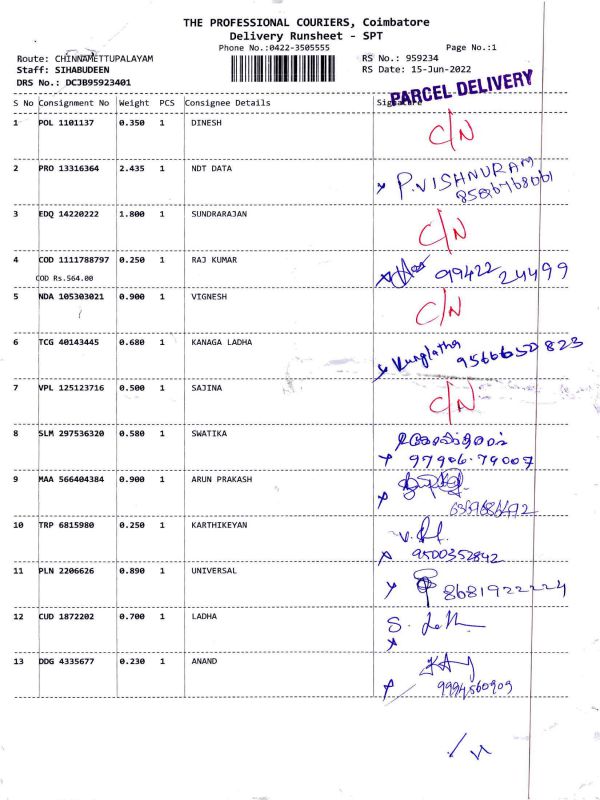 THE PROFESSIONAL COURIERS, Coimbatore
Delivery Runsheet - SPT
Phone No.:0422-3505555
Page No.:1
Route: CHINNAMETTUPALAYAM
RS No.: 959234
Staff: SIHABUDEEN
RS Date: 15-Jun-2022
DRS No.: DCJB95923401
PARCEL DELIVERY
S No Consignment No Weight PCS Consignee Details Signature
1 POL 1101137 0.350 1 DINESH
C/N
2 PRO 13316364 2.435 1 NDT DATA
x P.VISHNURAM
3 EDQ 14220222 1.800 1 SUNDRARAJAN
C/N
4 COD 1111788797 0.250 1 RAJ KUMAR
99422 24499
COD Rs.564.00
5 NDA 105303021 0.900 1 VIGNESH
C/N
6 TCG 40143445 0.680 1 KANAGA LADHA
9566650823
7 VPL 125123716 0.500 1 SAJINA
C/N
8 SLM 297536320 0.580 1 SWATIKA
x 97906.79007
9 MAA 566404384 0.900 1 ARUN PRAKASH
x
10 TRP 6815980 0.250 1 KARTHIKEYAN
x 9500352842
11 PLN 2206626 0.890 1 UNIVERSAL
x 8681922224
12 CUD 1872202 0.700 1 LADHA
x
13 DDG 4335677 0.230 1 ANAND
x 9994560909